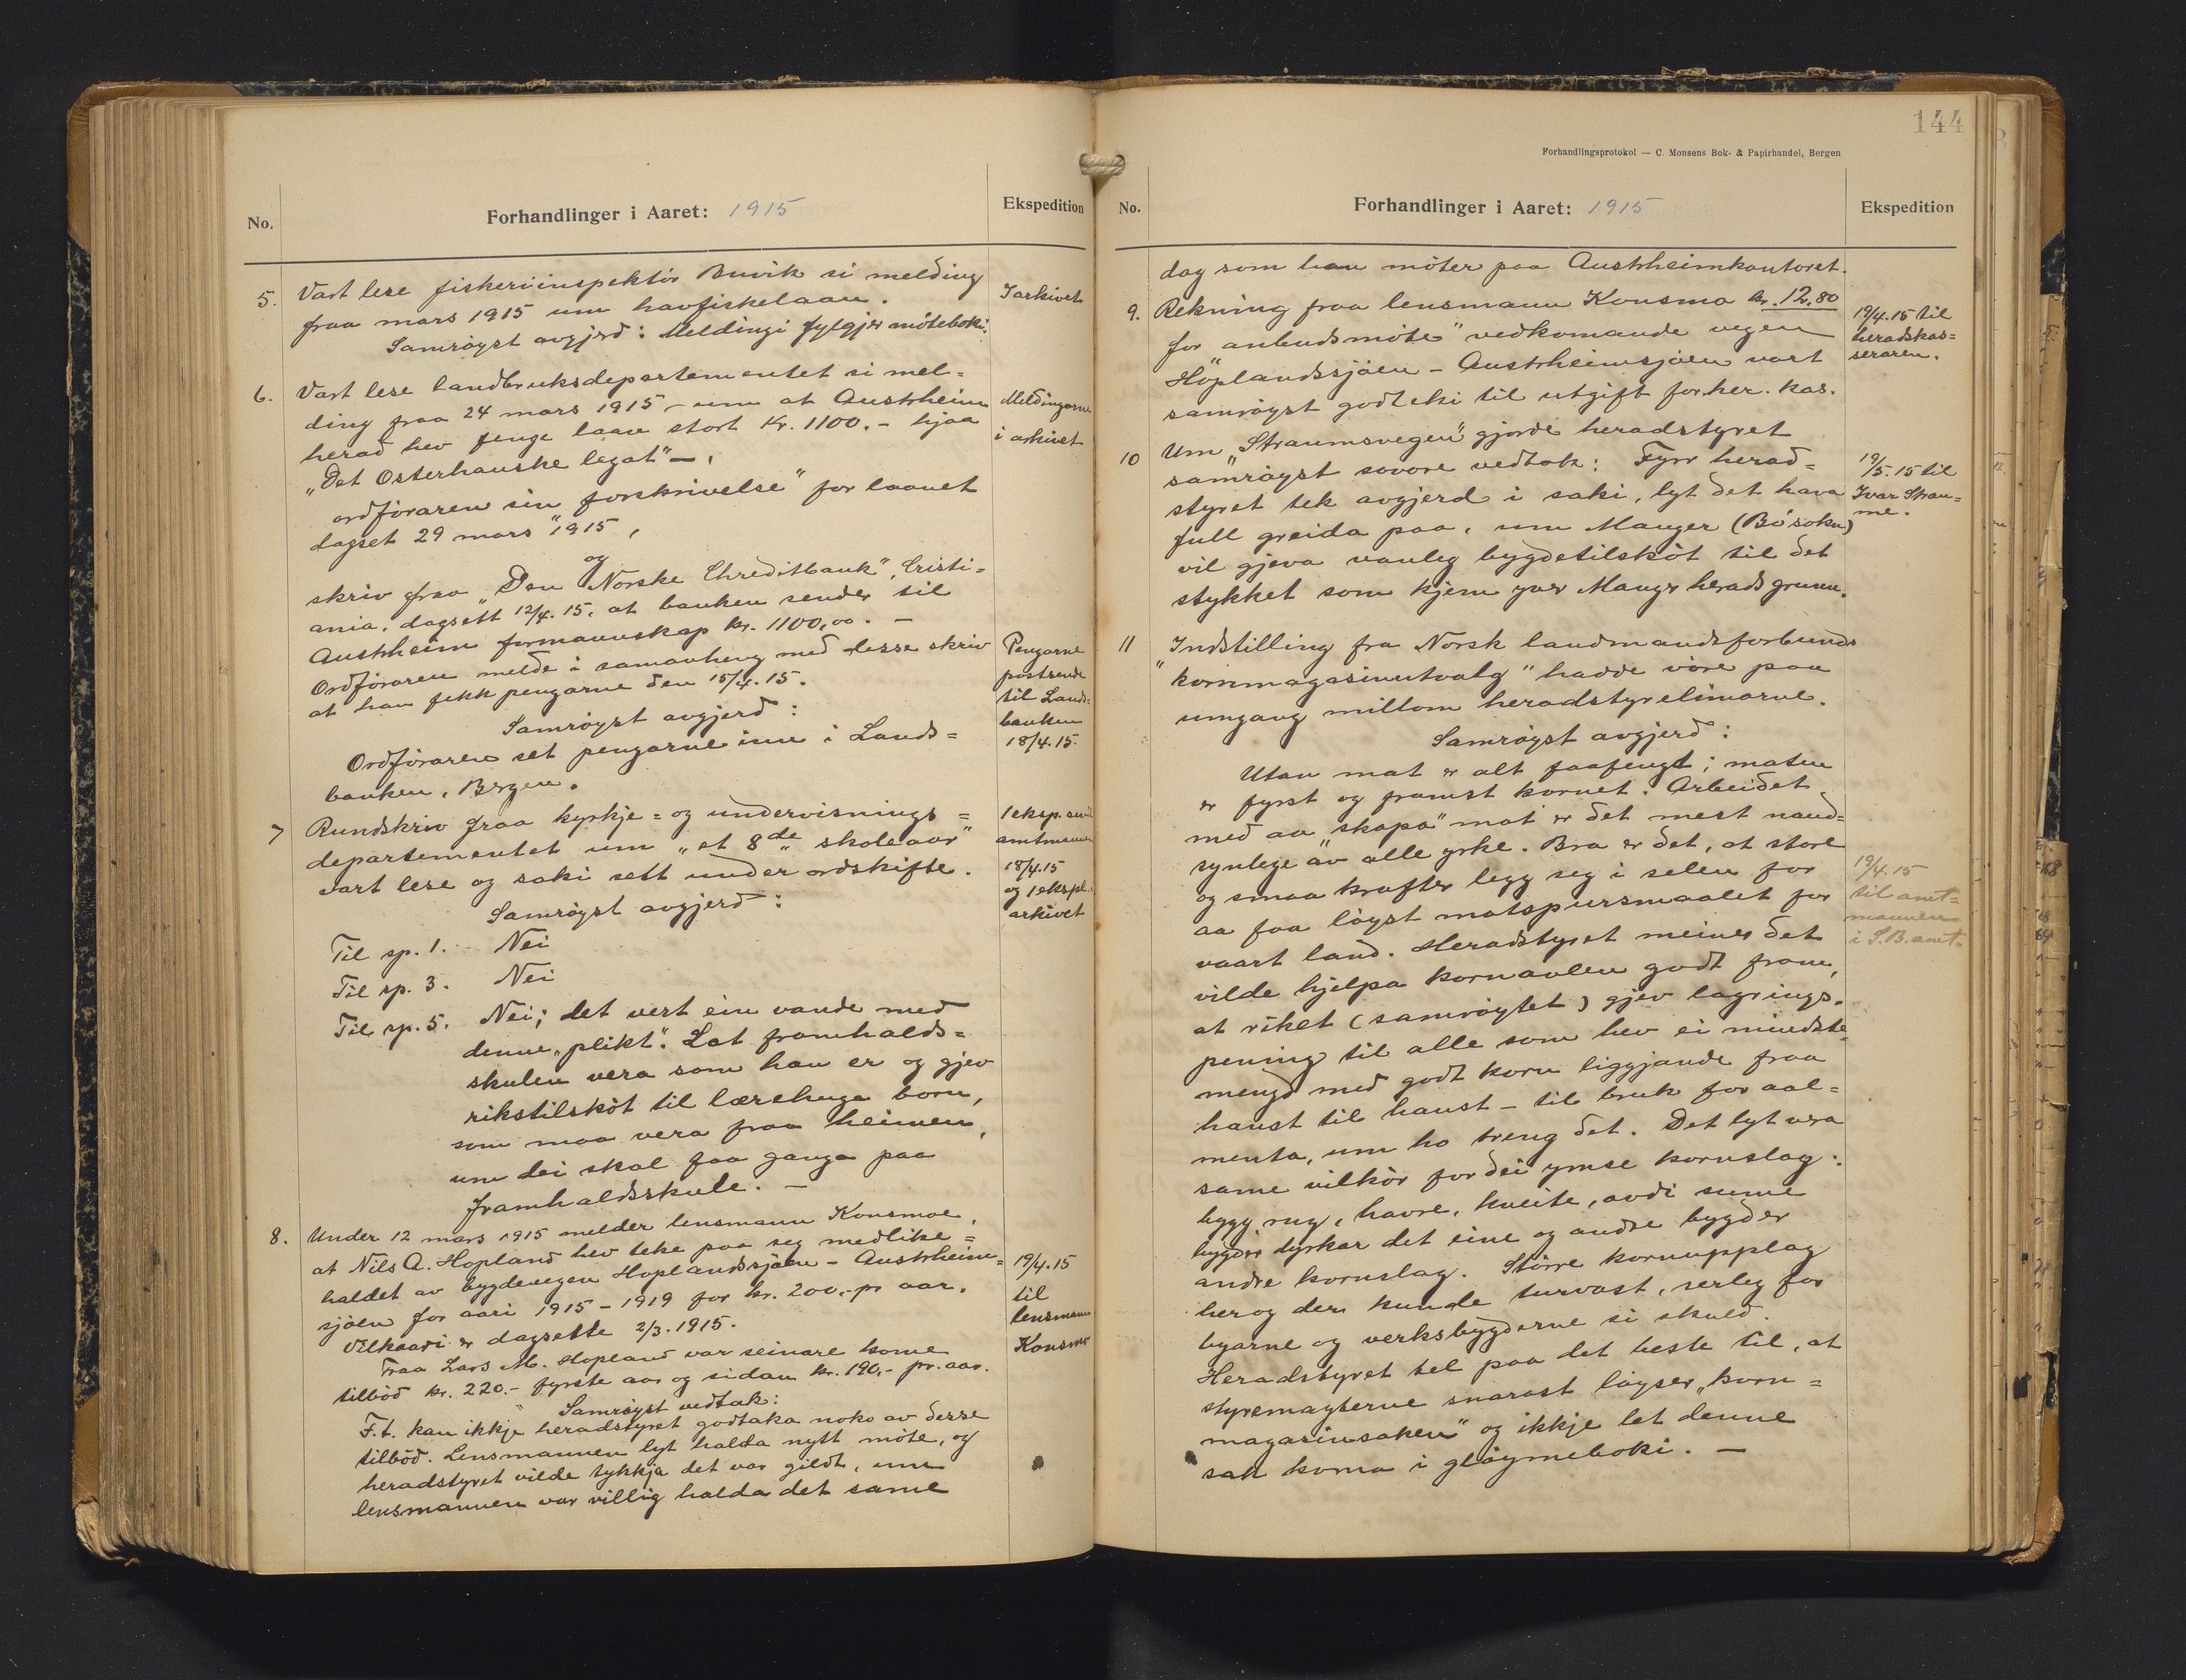 No.
Forhandlinger i Aaret: 1915
Ekspedition
5. Vart lese fiskeriinspektör Buvik si melding
fraa mars 1915 um havfiskelaan.
Samröyst avgjerd: Meldingi fylgjer möteboki.
I arkivet
6. Vart lese landbruksdepartementet si mel=
ding fraa 24 mars 1915 – um at Austrheim
herad hev fenge laan stort Kr. 1100.- hjaa
„Det Osterhauske legat" – ,
ordföraren sin „forskrivelse" for laanet
dagset 29 mars 1915,
og
skriv fraa „Den Norske Chreditbank", Cristi=
ania, dagsett 12/4. 15, at banken sender til
Austrheim formannskap kr. 1100,00. –
Ordföraren melde i samanheng med desse skriv
at han fekk pengarne den 15/4. 15.
Samröyst avgjerd:
Ordföraren set pengarne inn i Lands=
banken, Bergen.
Meldingarne
i arkivet
Pengarne
postsende
til Lands=
banken
18/4. 15.
7 Rundskriv fraa kyrkje= og undervisnings=
departementet um „et 8de skoleaar"
vart lese og saki sett under ordskifte.
Samröyst avgjerd:
Til sp. 1. – Nei
Til sp. 3. Nei
Til sp. 5. Nei; det vert ein vande med
denne „plikt". Lat framhalds=
skulen vera som han er og gjev
rikstilsköt til lærehuga born,
som maa vera fraa heimen,
um dei skal faa ganga paa
framhaldsskule. –
1 eksp. send
amtmannen
18/4.15
og 1 ekspl. i
arkivet
8. Under 12 mars 1915 melder lensmann Konsmoe,
at Nils A. Hopland hev teke paa seg medlike=
haldet av bygdevegen Hoplandssjöen – Austrheim=
sjöen for aari 1915 – 1919 for kr. 200,- pr aar.
Vilkaari er dagsette 2/3. 1915.
Fraa Lars M. Hopland var seinare kome
tilbod kr. 220.- fyrste aar og sidan kr. 190,- pr. aar.
Samröyst vedtak:
F.t. kan ikkje heradstyret godtaka noko av desse
tilböd. Lensmannen lyt halda nytt möte, og
heradstyret vilde tykkja det var gildt, um
lensmannen var villig halda det same
19/4.15
til
lensmann
Konsmo
144
Forhandlingsprotokol — C. Monsens Bok- & Papirhandel, Bergen
No.
Forhandlinger i Aaret: 1915
Ekspedition
dag som han möter paa Austrheimkontoret.
9. Rekning fraa lensmann Konsmo kr. 12,80
for „anbudsmöte" vedkomande vegen
Hoplandssjöen – Austrheimsjöen vart
samröyst godteki til utgift for her. kas.
19/4.15 til
heradskas=
seraren.
10 Um „Straumsvegen" gjorde heradstyret
samröyst sovore vedtak: Fyrr herad=
styret tek avgjerd i saki, lyt det hava
full greida paa, um Manger (Bö sokn)
vil gjeva vanleg bygdetilsköt til det
stykket som kjem yver Manger herads grunn.
19/5. 15 til
Ivar Strau=
me.
11 Indstilling fra Norsk landmandsforbunds
„kornmagasinutvalg" hadde vore paa
umgang millom heradstyrelimarne.
Samröyst avgjerd:
Utan mat er alt faafengt; maten
er fyrst og framst kornet. Arbeidet
med aa „skapa" mat er det mest naud=
synlege av alle yrke. Bra er det, at store
og smaa krafter legg seg i selen for
aa faa löyst matspursmaalet for
vaart land. Heradstyret meiner det
vilde hjelpa kornavlen godt fram,
at riket (samröytet) gjev lagrings=
pening til alle som hev ei mindste=
mengd med godt korn liggjande fraa
haust til haust – til bruk for aal=
menta, um ho treng det. Det lyt vera
same vilkör for dei ymse kornslag:
bygg, rug, havre, kveite, avdi sume
bygder dyrkar det eine og andre bygder
andre kornslag. Större kornupplag
her og der kunde turvast, serleg for
byarne og verksbygderne si skuld.
Heradstyret tel paa det beste til, at
styremagterne snarast löyser „korn=
magasinsaken" og ikkje let denne
sak koma i glöymeboki. –
19/4. 15
til amt=
mannen
i S.B.amt.